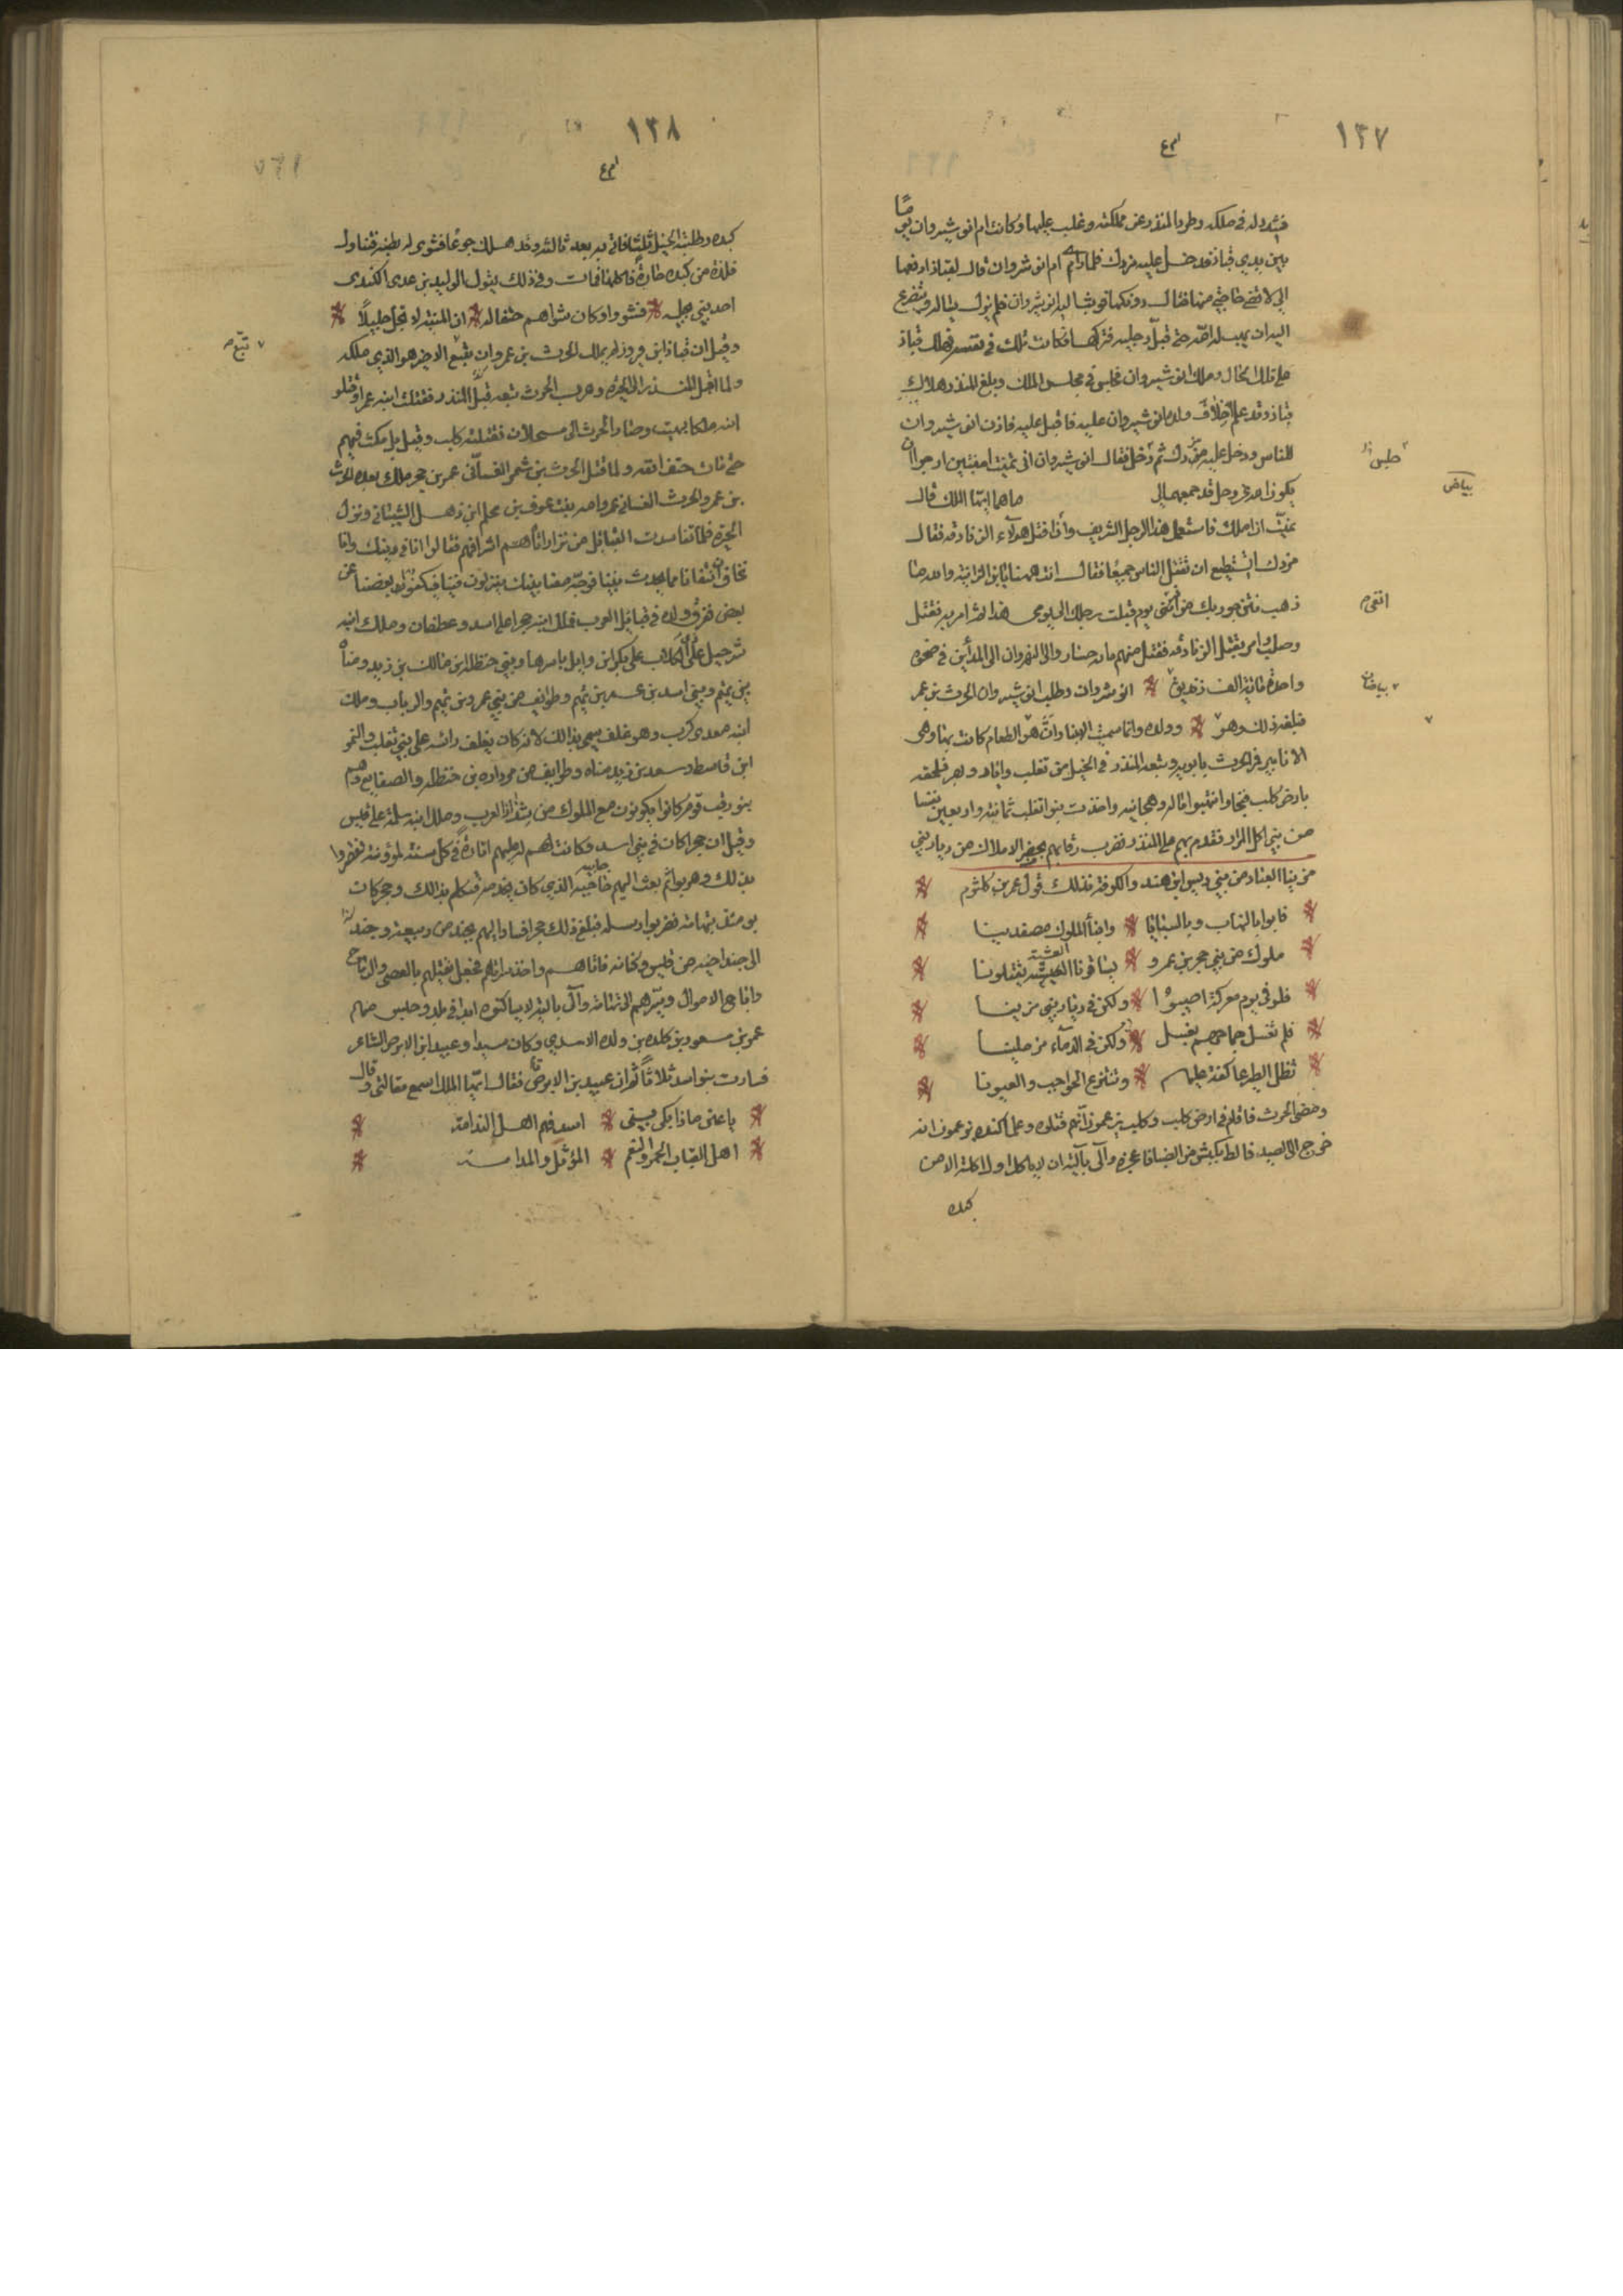 ١٣٧
فشدد له في ملكه وطرد المنذر عن مملكته وغلب عليها وكانت ام انوشيروان يوما
بين يدي قباذ فدخل عليه مزدك فلما راى ام انوشروان قال لقباذ ادفعها
الي لاقضي حاجتي منها فقال دونكها فوثب اليه انوشروان فلم يزل يساله ويتضرع
اليه ان يهب له امه حتى قبل رجليه فتركها فكانت تلك في نفسه فهلك قباذ
على تلك الحال وملك انوشيروان فجلس في مجلس الملك وبلغ المنذر هلاك
قباذ وقد علم خلاف ولده انوشيروان عليه فاقبل عليه فاذن انوشيروان
للناس ودخل عليه مزدك ثم دخل فقال انوشيروان اني تمنيت امنيتين ارجوا ان
يكون الله عز وجل قد جمعهما لي
ما هما ايها الملك قال
تمنيت ان املك فاستعمل هذا الرجل الشريف وان اقتل هؤلاء الزنادقة فقال
مزدك اتستطيع ان تقتل الناس جميعا فقال انت ههنا يابن الزانية والله ما
ذهب نتن جوربك من انفي يوم قبلت رجلك الى يومي هذا ثم امر به فقتل
وصلب وامر بقتل الزنادقة فقتل منهم ما بين جازر والى النهروان الى المداين في ضحوة
واحدة مائة الف زنديق انوشروان وطلب انوشيروان الحرث بن عمر
فبلغه ذلك وهو وولده وانما سميت الانبار لان هو الطعام كانت بها وهي
الانابير فر الحرث وتبعه المنذر في الخيل من تغلب واياد وبهر فلحقه
بارض كلب فنجا وانتهبوا ماله وهجاينه واخذت بنوا تغلب ثمانية واربعين نفسا
من بني اكل المرار فقدم بهم على المنذر فضرب رقابهم بجفر الاملاك من ديار بني
مرينا العباد من بني دير ابن هند والكوفة فذلك قول عمر بن كلثوم
فابوا بالنهاب وبالسبايا وابنا الملوك مصفدينا
ملوك من بني حجر بن عمرو يساقونا العشية يقتلونا
فلو في يوم معركة اصيبوا ولكن في ديار بني مرينا
فلم تغسل جماجهم بغسل ولكن في الدماء مرملينا
تظل الطير عاكفة عليهم وتنتزع الحواجب والعيونا
ومضى الحرث فاقام في ارض كلب وكلب يزعمون انهم قتلوه وعلما كنده يزعمون انه
خرج الى الصيد فالظ بكبش من الضبا فاعجزه وآلى بالية ان لا ياكل اولا اكلة الا من
كبده
جلس
بياض
انفي م
بياض
١٣٨
كبده وطلبته الخيل ثلثا فاتي به بعد ثالثة وقد هلك جوعا فشوى له بطنه فتناول
فلذة من كبده حارة فاكلها فمات وفي ذلك يقول الوليد بن عدي الكندي
احد بني بجله فشووا وكان شواهم حتفا له ان المنية لا تجل جليلا
وقيل ان قباذ ابن فيروز لم يملك الحرث بن عمرو ان تبع الاخير هو الذي ملكه
ولما اقبل المنذر الى الحيره وهرب الحرث تبعه قبل المنذر فقتلت ابنه عمرا وقتلوا
ابنه ملكا بهيت وصار الحرث الى مسحلان فقتلته كلب وقيل بل مكث فيهم
حتى مات حتف انفه ولما قتل الحرث بن شمر الغساني عمر بن حجر ملك بعده الحرث
بن عمرو الحرث الغساني عمرو امه بنت عوف بن محلم ابن ذهل الشيباني ونزل
الحيرة فلما تفاسدت القبائل من نزار اتاه اشرافهم فقالوا انا في دينك وانا
نخاف ان نتفانا مما يحدث بيننا فوجه معنا بنيك ينزلون فينا فيكفون بعضنا عن
بعض ففرق ولاه في قبايل العرب فملك ابنه حجرا على اسد وغطفان وملك ابنه
شرحبيل على بكر ابن وايل باسرها وبني حنظلة ابن مالك بن زيد ومناه
بني تميم وبني اسد بن عمر بن تميم وطوايف من بني عمرو بن تميم والرباب وملك
ابنه معدي كرب وهو غلف سمي بذالك لانه كان يغلف رائسه على بني تغلب والنمر
ابن قاسط وسعد بن زيد مناه وطوايف من بني دارم بن حنظلة والصفايع وهم
بنو رقيه قوم كانوا يكونون مع الملوك من شذاذ العرب وملك ابنه سلمة على قيس
وقيل ان حجرا كان في بني اسد وكانت لهم له عليهم اتاوة في كل سنة لمؤونته
بذلك وهربوا ثم بعث اليهم جابيه الذي كان يجبيهم فكلم بذالك وحجر كان
يومئذ بتهامة فضربوا رسله فبلغ ذلك حجرا فسار اليهم بجند من ربيعة وجند
الى جند اخيه من قيس وكنانه فاتاهم واخذ سراتهم فجعل يقتلهم بالعصى
واباح الاموال وسيرهم الى تهامة وآلى بالله لا يساكنوه ابدا في بلد وحبس منهم
عمر بن مسعود بن كلده ولده الاسدي وكان سيدا وعبيد ابن الابرص الشاعر
فسارت بنوا اسد ثلاثا ثم ان عبيد بن الابرص قام فقال ايها الملك اسمع مقالتي وقال
يا عين ماذا يكي بيتي اسد فهم اهل الندامة
اهل القباب الحمر والنعم المؤثل والمدامة
تبع